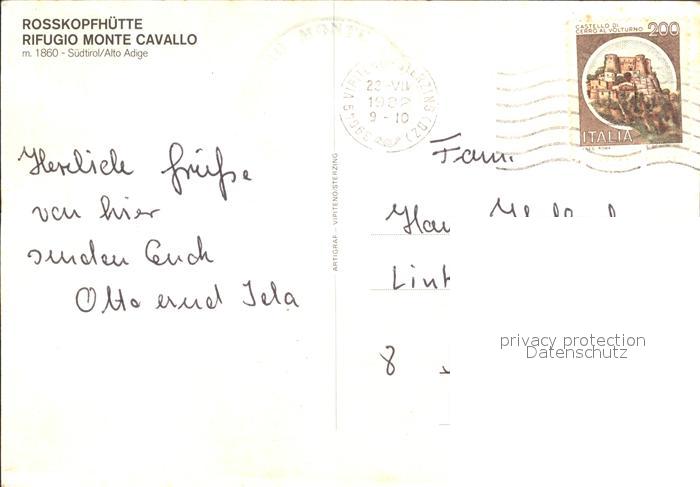 ROSSKOPFHÜTTE
RIFUGIO MONTE CAVALLO
m. 1860 - Südtirol/Alto Adige
CASTELLO DI
CERRO AL VOLTURNO 200
ITALIA
39049 VIPITENO STERZING (BZ)
23-VII
9-10
Herzliche Grüße
von hier
senden Euch
Otto und
ARTIGRAF - VIPITENO/STERZING
Fam.
8
privacy protection
Datenschutz